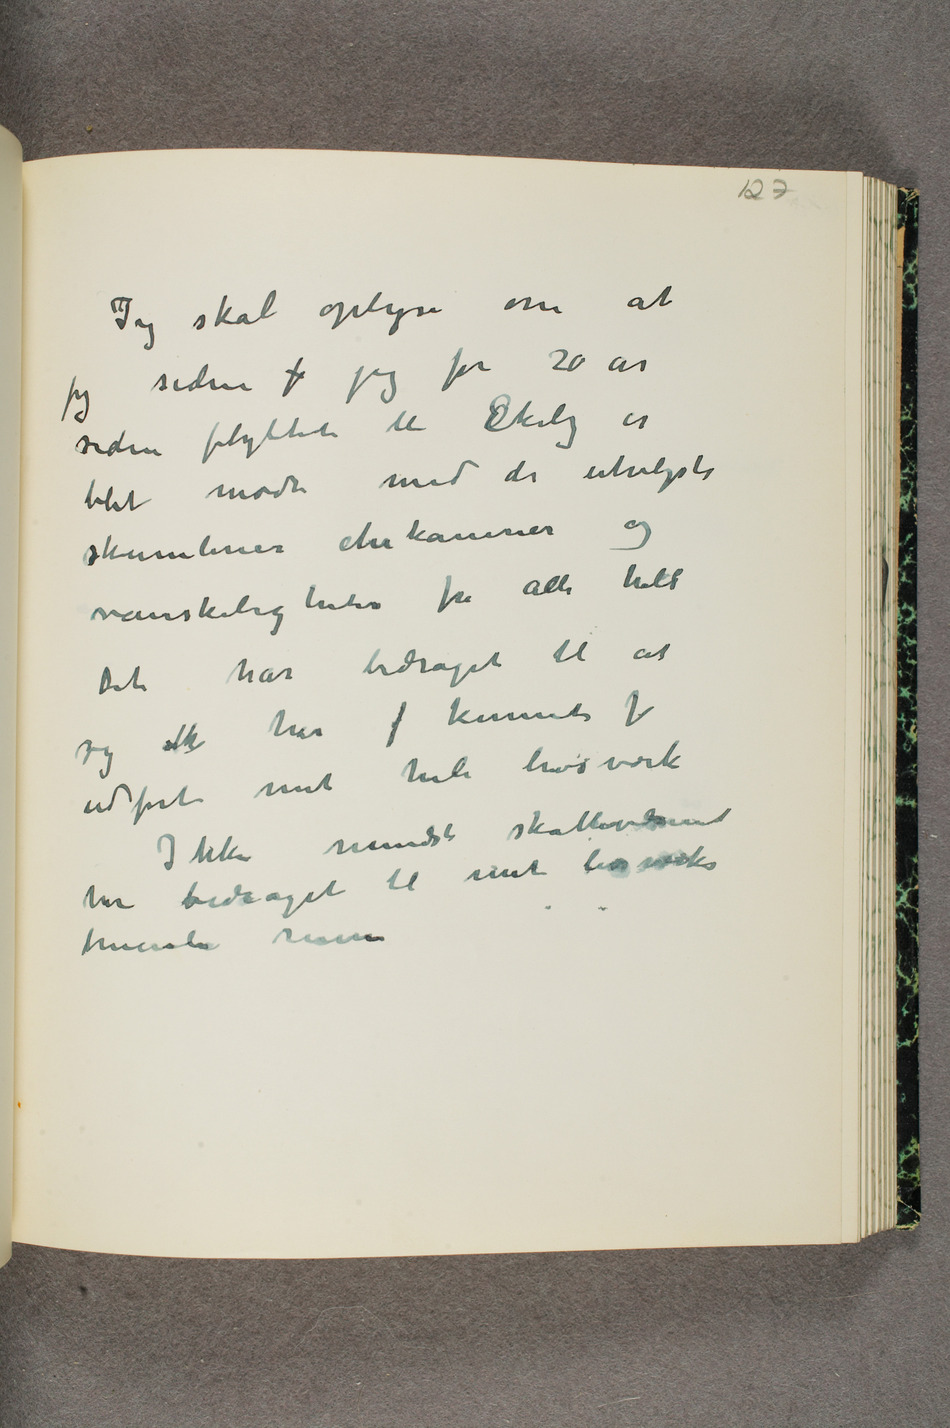 127
Jeg skal oplyse om at
jeg siden f jeg for 20 år
siden flyttet til Ekely er
blet mødt med de utvalgste
chikanerier og
vanskeligheter fra alle hold
Det har bidraget til at
jeg ikke har f kunnet f
udført mit hele livsværk
Ikke mindst skattevæsenet
har bidraget til mit livsværks